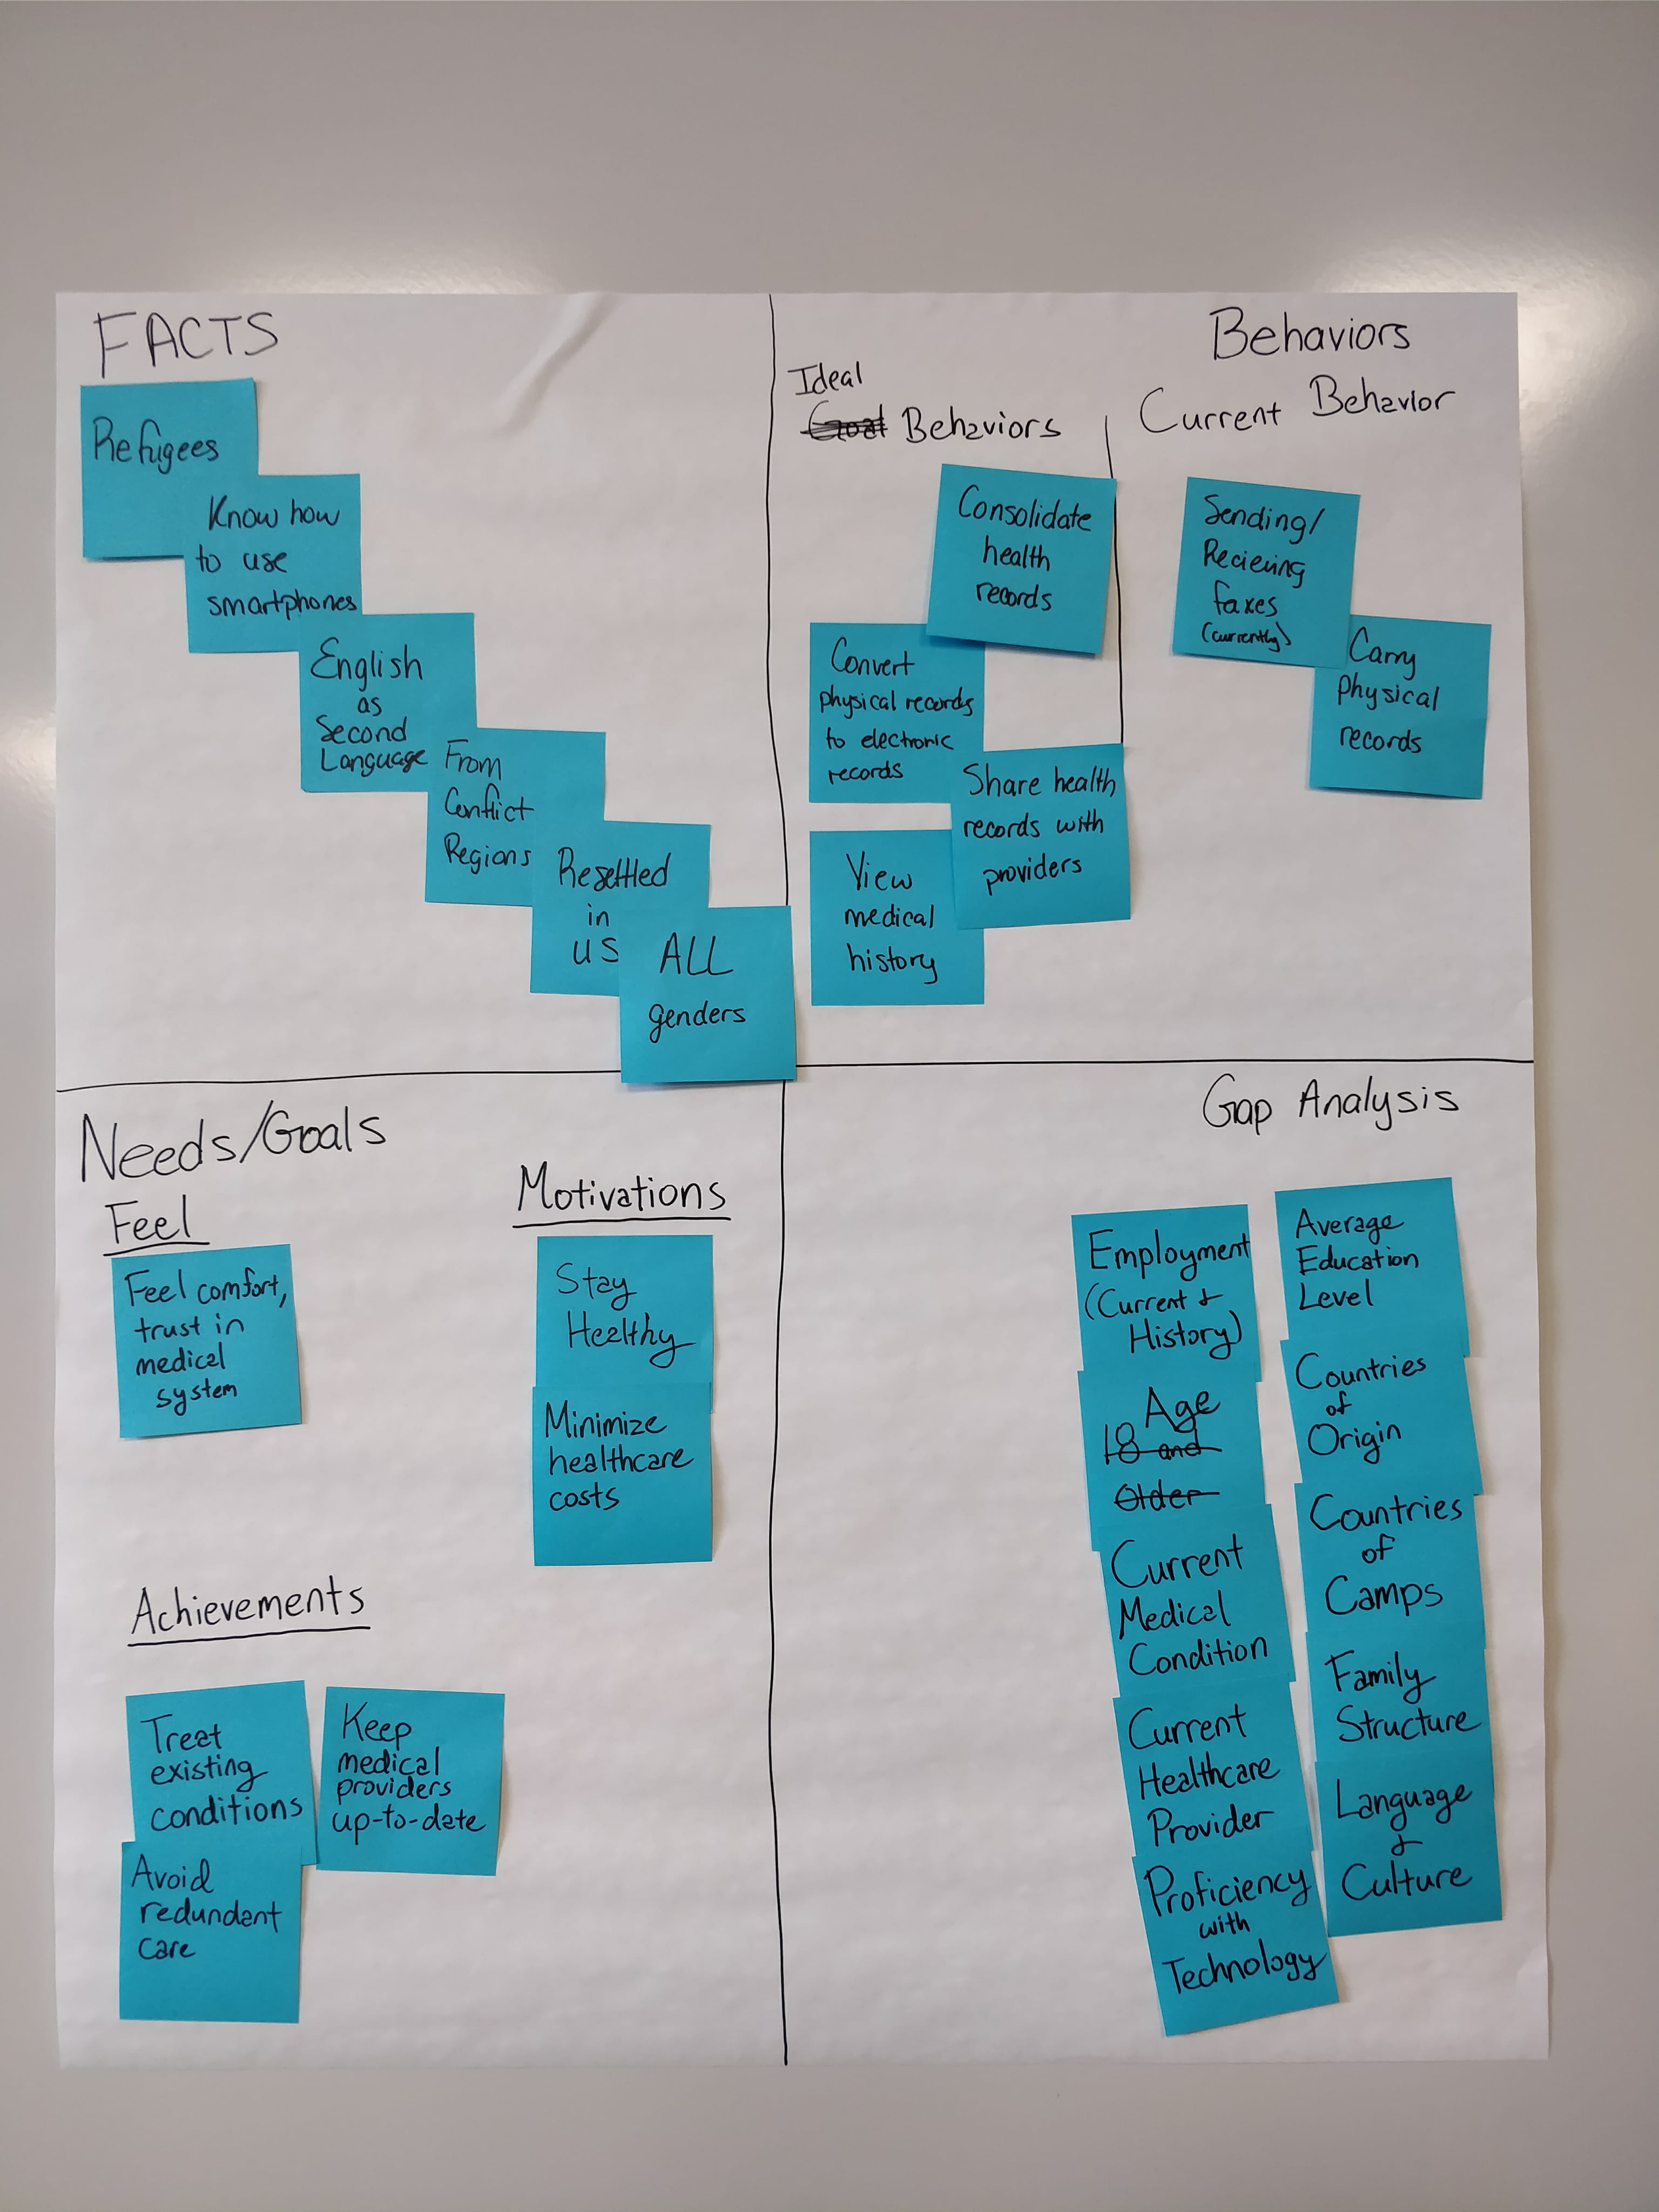 FACTS
Refugees
Know how
to use
smartphones
English
as
Second
Language
From
Conflict
Regions
Resettled
in
US
ALL
genders
Behaviors
Ideal
Goal Behaviors
Consolidate
health
records
Convert
physical records
to electronic
records
Share health
records with
providers
View
medical
history
Current Behavior
Sending/
Recieving
faxes
(currently)
Carry
Physical
records
Needs/Goals
Feel
Feel comfort,
trust in
medical
system
Motivations
Stay
Healthy
Minimize
healthcare
costs
Achievements
Treat
existing
conditions
Keep
medical
providers
up-to-date
Avoid
redundant
care
Gap Analysis
Employment
(Current &
History)
Age
18 and
Older
Current
Medical
Condition
Current
Healthcare
Provider
Proficiency
with
Technology
Average
Education
Level
Countries
of
Origin
Countries
of
Camps
Family
Structure
Language
&
Culture